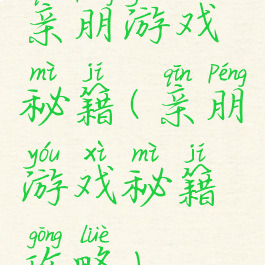 亲朋游戏
mì jí qīn Péng
秘籍(亲朋
yóu xì mì jí
游戏秘籍
gōng lüè
攻略)